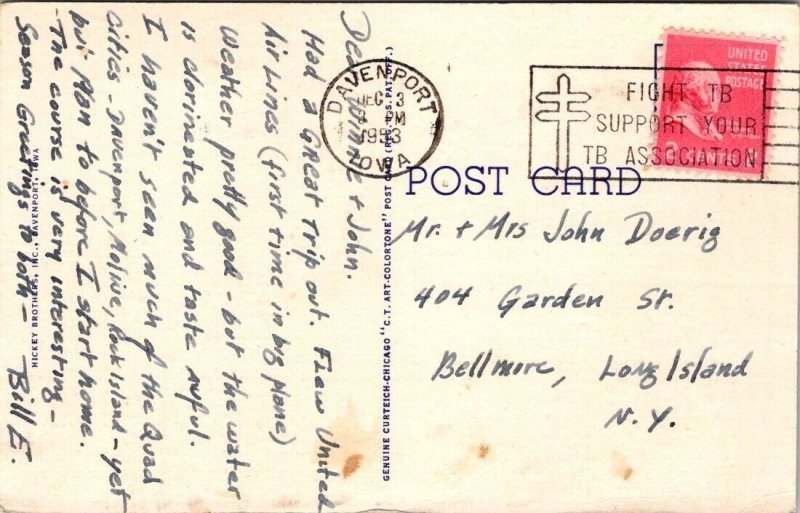 Dear Minnie + John.
Had a Great Trip out. Flew United
Air Lines (first time in big plane)
Weather pretty good - but the water
is clorinested and taste awful.
I haven't seen much of the Quad
Cities - Davenport, Moline, Rock Island - yet
but plan to before I start home.
The course is very interesting -
Season Greetings to both - Bill E.
HICKEY BROTHERS, INC., DAVENPORT, IOWA
GENUINE CURTEICH-CHICAGO "C. T. ART-COLORTONE" POST CARD (REG. U.S. PAT. OFF.)
DAVENPORT
DEC 3
PM
1953
IOWA
FIGHT TB
SUPPORT YOUR
TB ASSOCIATION
UNITED
STATES
POSTAGE
POST CARD
Mr. + Mrs John Doerig
404 Garden St.
Bellmore, Long Island
N.Y.